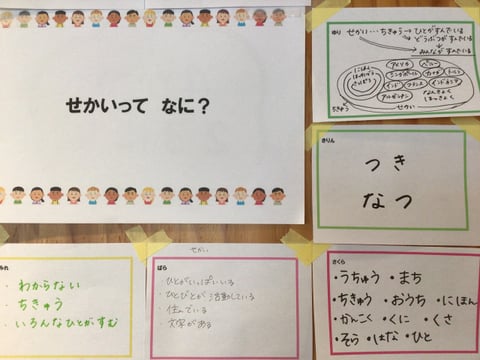 せかいって なに?
ゆり
せかい…ちきゅう→ひとがすんでいる
どうぶつがすんでいる
みんながすんでいる
アメリカ
ペルー
シンガポール
カナダ
トルコ
インド
フランス
インドネシア
アルゼンチン
なんきょく
ほっきょく
にほん
ちきゅう
せかい
きりん
つき
なつ
みれ
・わからない
・ちきゅう
・いろんなひとが、すむ
せかい
ばら
・ひとがいっぱいいる
・ひとびとが活動している
・住んでいる
・文字がある
さくら
・うちゅう ・まち
・ちきゅう ・おうち ・にほん
・かんこく ・くに ・くさ
・そら ・はな ・ひと